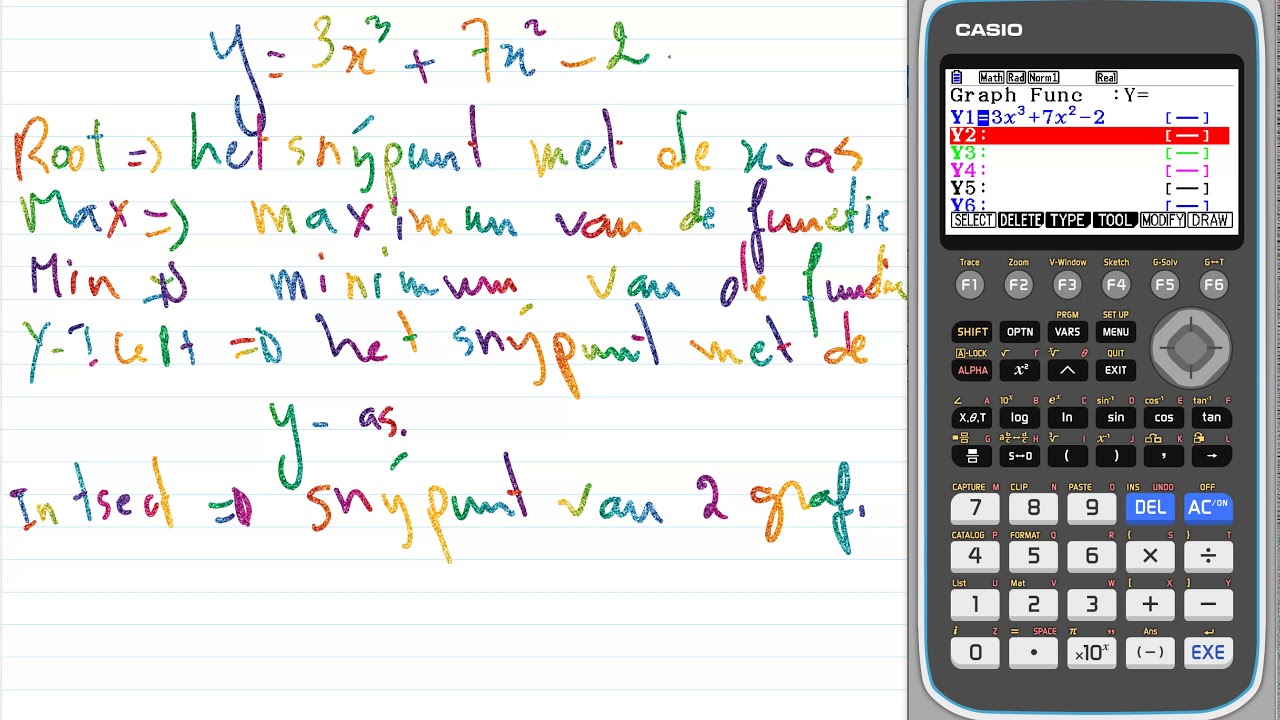 y = 3x³ + 7x² - 2.
Root => het snijpunt met de x-as
Max => maximum van de functie
Min => minimum van de functie
Y-Icelt => het snijpunt met de
y-as.
Intsect => snijpunt van 2 graf.
CASIO
Math Rad Norm1 Real
Graph Func :Y=
Y1=3x³+7x²-2 [—]
Y2: [—]
Y3: [—]
Y4: [—]
Y5: [—]
Y6: [—]
SELECT DELETE TYPE TOOL MODIFY DRAW
Trace Zoom V-Window Sketch G-Solv G↔T
F1 F2 F3 F4 F5 F6
PRGM SET UP
SHIFT OPTN VARS MENU
A-LOCK √ r ˣ√ θ QUIT
ALPHA x² ^ EXIT
∠ A 10ˣ B eˣ C sin⁻¹ D cos⁻¹ E tan⁻¹ F
X,θ,T log ln sin cos tan
G a b/c↔d/c H ³√ I x⁻¹ J K L
S↔D ( ) , →
CAPTURE M CLIP N PASTE O INS UNDO OFF
7 8 9 DEL AC/ON
CATALOG P FORMAT Q R { S } T
4 5 6 × ÷
List U Mat V W [ X ] Y
1 2 3 + −
i Z = SPACE π " Ans ↵
0 • ×10ˣ (−) EXE